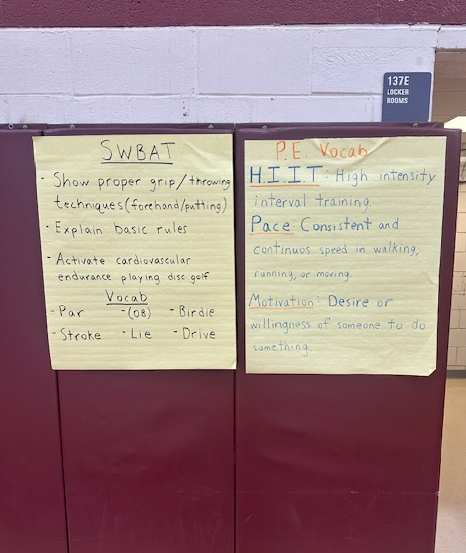 137E
LOCKER
ROOMS
SWBAT
- Show proper grip/throwing
techniques (forehand/putting)
- Explain basic rules
- Activate cardiovascular
endurance playing disc golf
Vocab
- Par - (OB) - Birdie
- Stroke - Lie - Drive
P.E. Vocab
H.I.I.T: High intensity
interval training.
Pace: Consistent and
continuos speed in walking,
running, or moving.
Motivation: Desire or
willingness of someone to do
something.